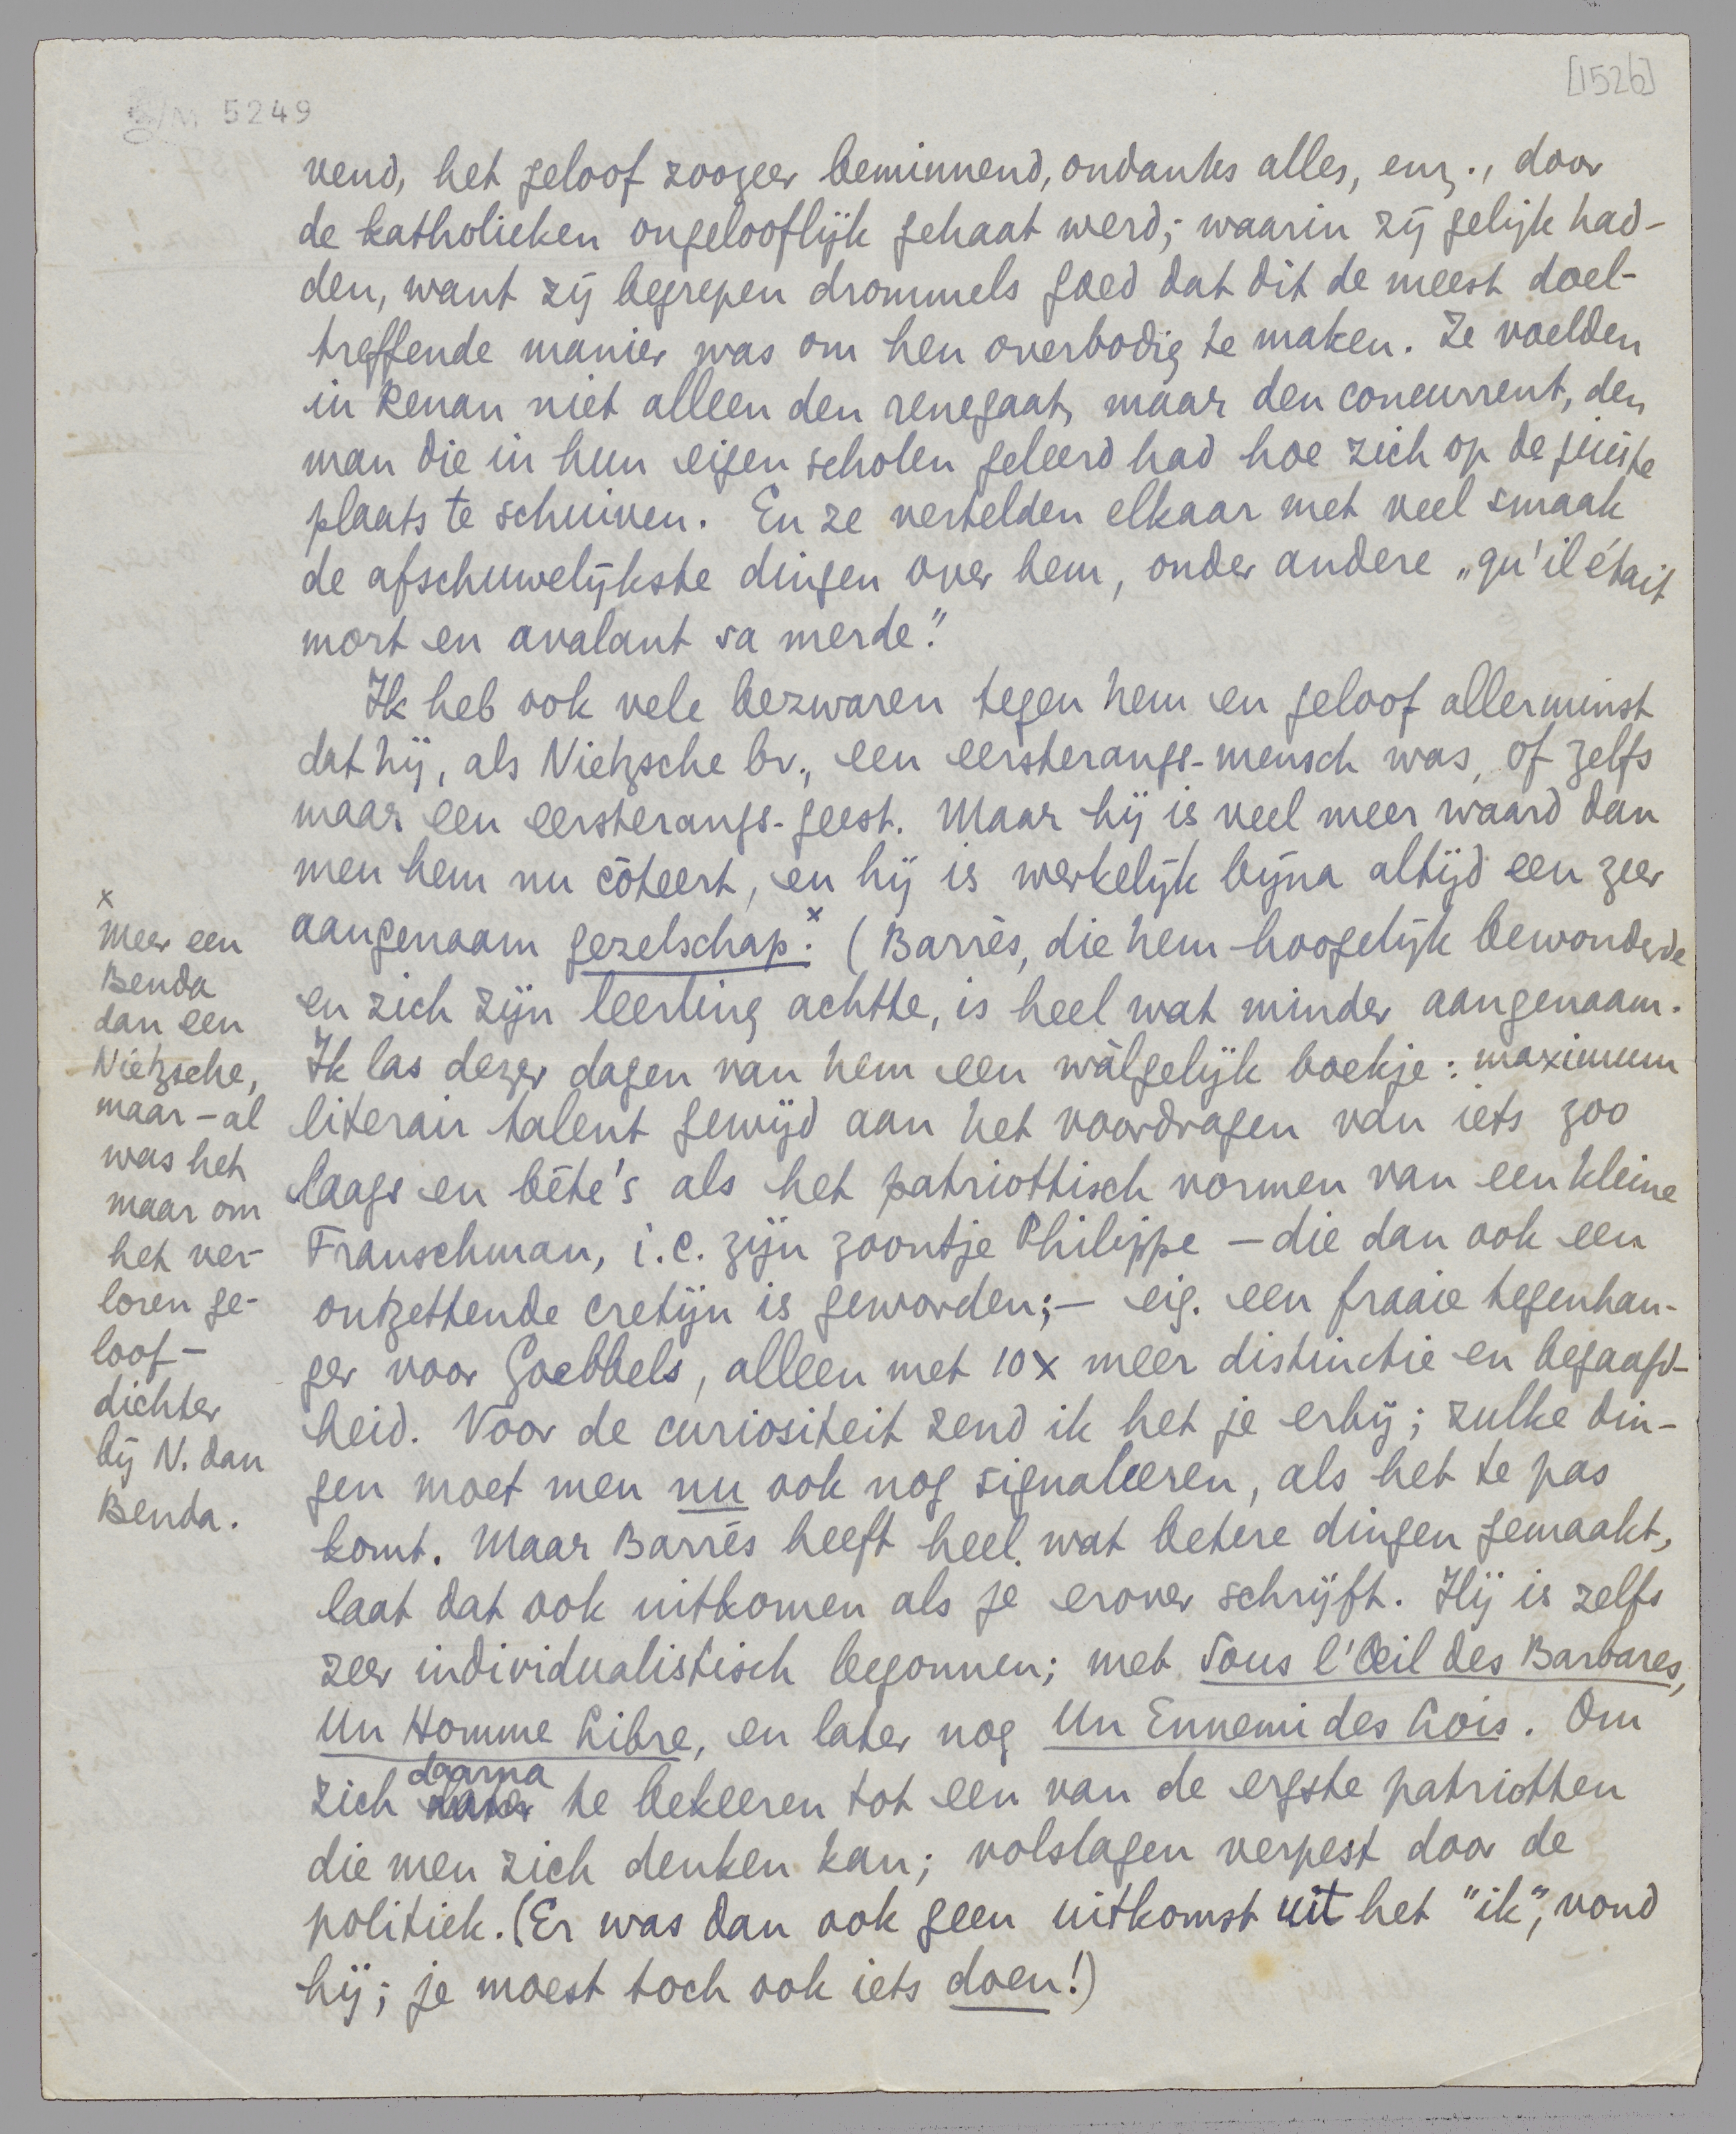 [1526]
M 5249
vend, het geloof zoozeer beminnend, ondanks alles, enz., door
de katholieken ongelooflijk gehaat werd; waarin zij gelijk had-
den, want zij begrepen drommels goed dat dit de meest doel-
treffende manier was om hen overbodig te maken. Ze voelden
in Renan niet alleen den renegaat, maar den concurrent, den
man die in hun eigen scholen geleerd had hoe zich op de juiste
plaats te schuiven. En ze vertelden elkaar met veel smaak
de afschuwelijkste dingen over hem, onder andere „qu'il était
mort en avalant sa merde."
Ik heb ook vele bezwaren tegen hem en geloof allerminst
dat hij, als Nietzsche bv., een eersterangs-mensch was, of zelfs
maar een eersterangs-geest. Maar hij is veel meer waard dan
men hem nu côteert, en hij is werkelijk bijna altijd een zeer
aangenaam gezelschap.x (Barrès, die hem hoogelijk bewonderde
en zich zijn leerling achtte, is heel wat minder aangenaam.
Ik las dezer dagen van hem een wàlgelijk boekje: maximum
literair talent gewijd aan het voordragen van iets zoo
laags en bête's als het patriottisch vormen van een kleine
Franschman, i.c. zijn zoontje Philippe – die dan ook een
ontzettende cretijn is geworden; – eig. een fraaie tegenhan-
ger voor Goebbels, alleen met 10x meer distinctie en begaafd-
heid. Voor de curiositeit zend ik het je erbij; zulke din-
gen moet men nu ook nog signaleeren, als het te pas
komt. Maar Barrès heeft heel wat betere dingen gemaakt,
laat dat ook uitkomen als je erover schrijft. Hij is zelfs
zeer individualistisch begonnen; met Sous l'Œil des Barbares,
Un Homme Libre, en later nog Un Ennemi des Lois. Om
zich daarna te bekeeren tot een van de ergste patriotten
die men zich denken kan; volslagen verpest door de
politiek. (Er was dan ook geen uitkomst uit het "ik", vond
hij; je moest toch ook iets doen!)
x
Meer een
Benda
dan een
Nietzsche,
maar – al
was het
maar om
het ver-
loren ge-
loof –
dichter
bij N. dan
Benda.